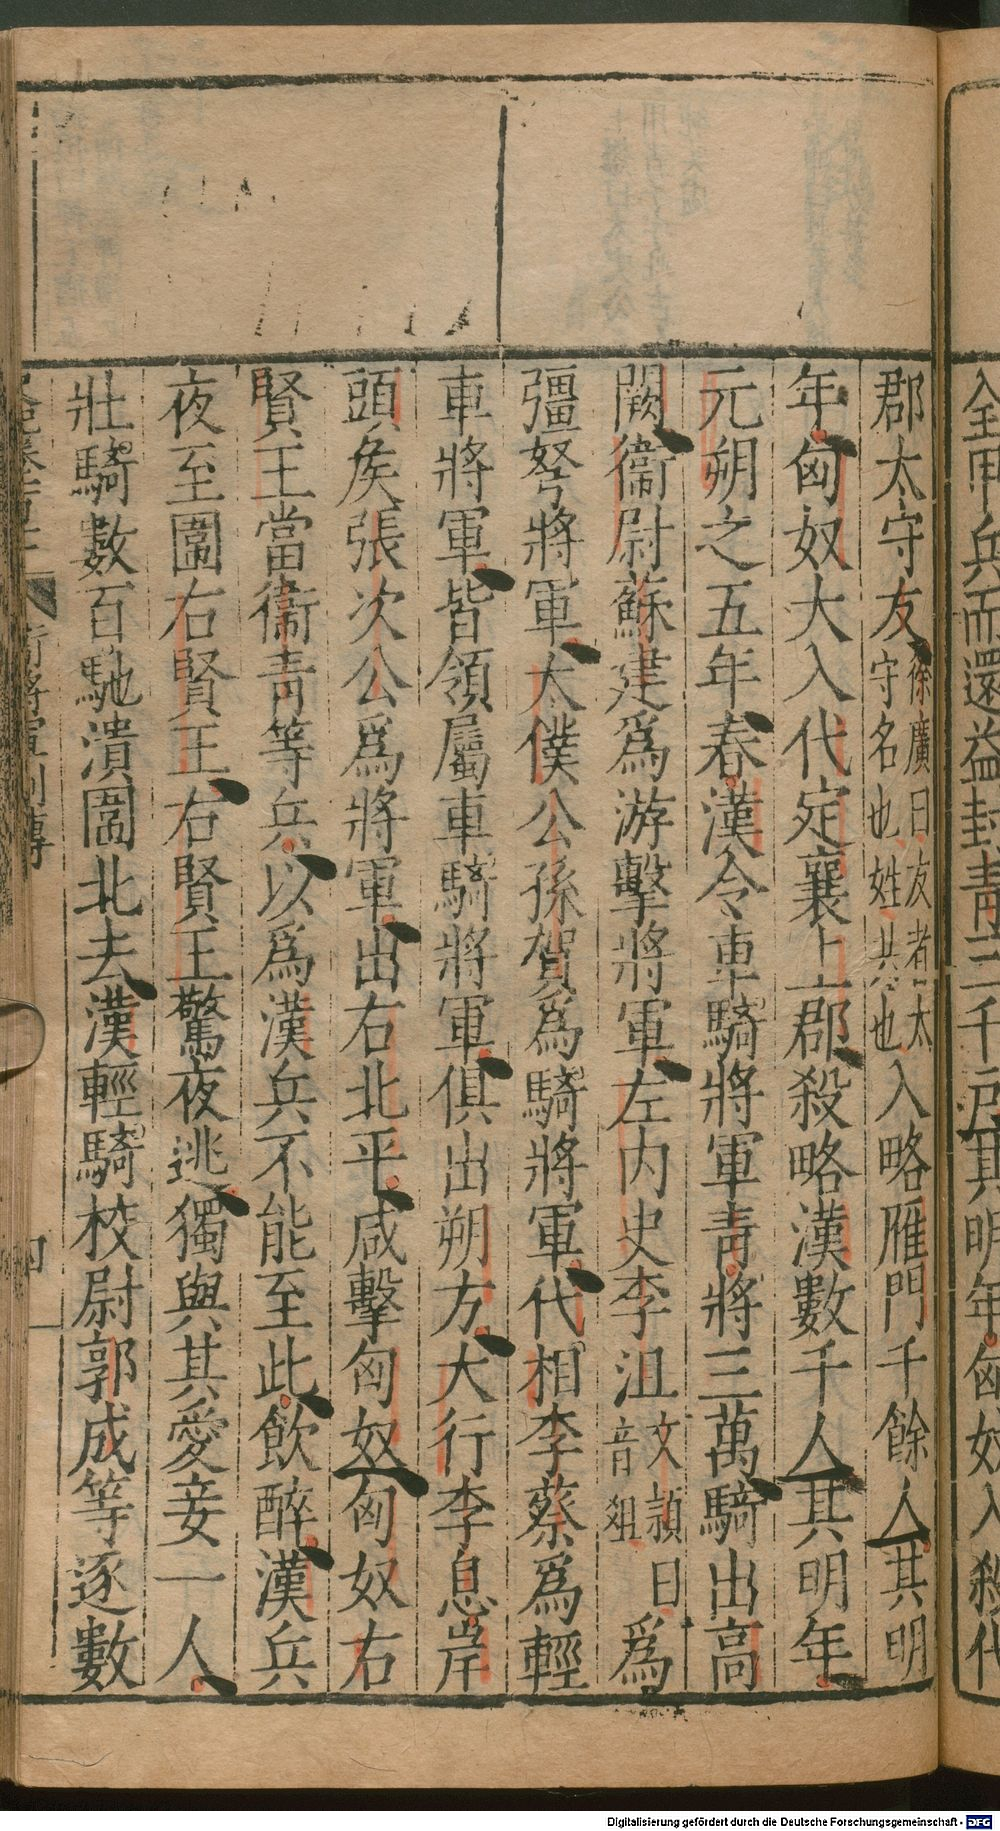 全甲兵而還益封青三千戶其明年匈奴入殺代
郡太守友徐廣曰友者太守名也姓共也入略雁門千餘人其明
年匈奴大入代定襄上郡殺略漢數千人其明年
元朔之五年春漢令車騎將軍青將三萬騎出高
闕衞尉蘇建爲游擊將軍左內史李沮文頴曰音俎爲
彊弩將軍太僕公孫賀爲騎將軍代相李蔡爲輕
車將軍皆領屬車騎將軍俱出朔方大行李息岸
頭矦張次公爲將軍出右北平咸擊匈奴匈奴右
賢王當衞青等兵以爲漢兵不能至此飲醉漢兵
夜至圍右賢王右賢王驚夜逃獨與其愛妾一人
壯騎數百馳潰圍北去漢輕騎校尉郭成等逐數
衞將軍列傳
四
Digitalisierung gefördert durch die Deutsche Forschungsgemeinschaft - DFG